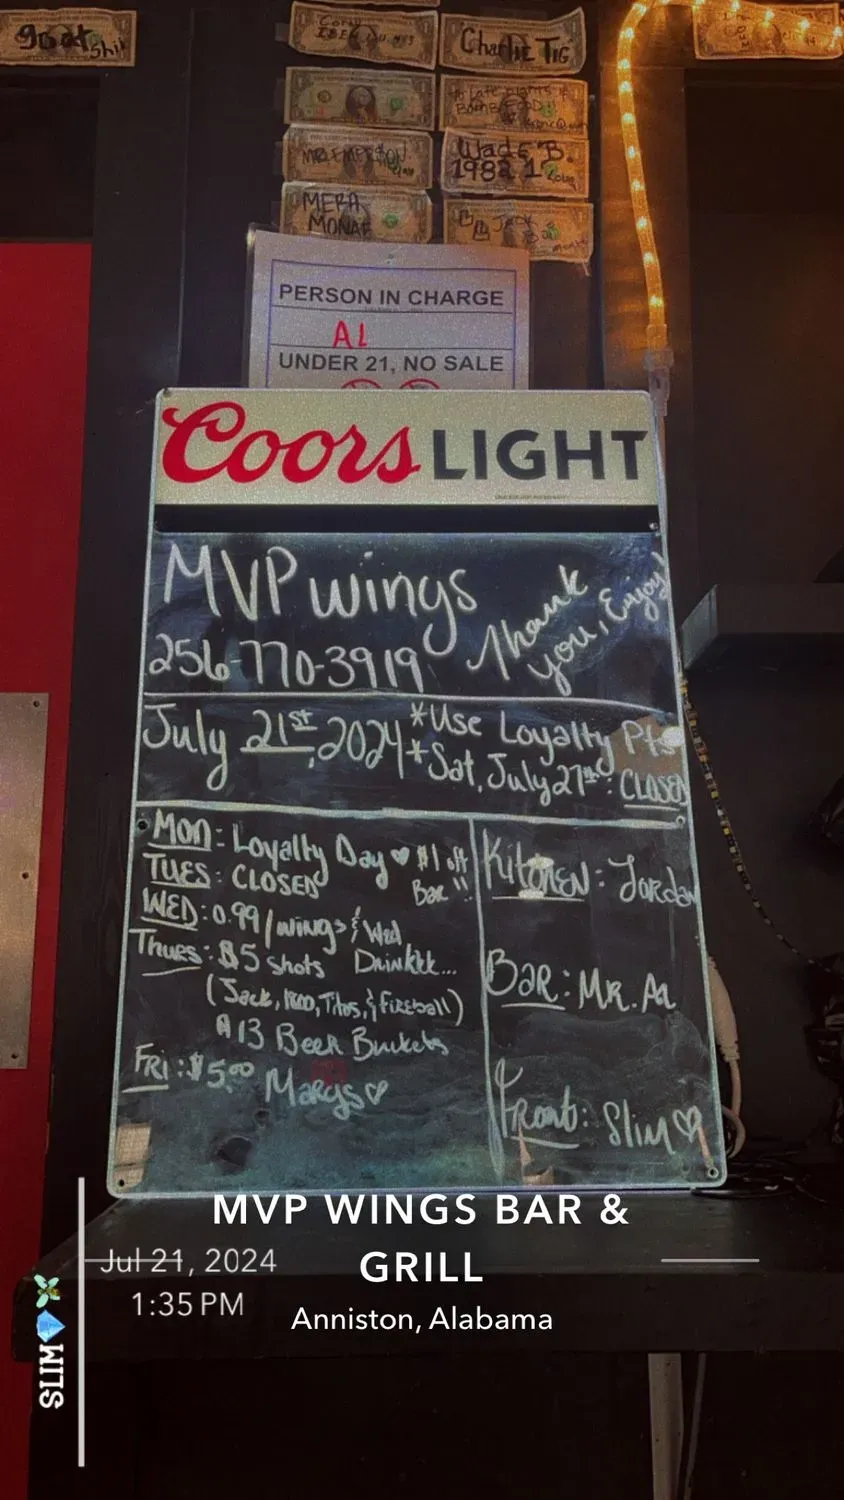 goat
Shit
Corey
IBEW
Charlie Tig
to late nights &
Bomb FOOD!!
MR. EMERSON
Wade B.
1982
MERA
MONAE
Jack
PERSON IN CHARGE
AL
UNDER 21, NO SALE
Coors LIGHT
MVP wings
Thank
you, Enjoy!
256-770-3919
July 21st, 2024
*Use Loyalty Pts
*Sat, July 27th: CLOSED
MON: Loyalty Day ♡ $1 off
Bar!!
TUES: CLOSED
WED: 0.99/wings & Wed
Drinkkk...
Thurs: $5 shots
(Jack, 1800, Titos, & fireball)
$13 Beer Buckets
FRI: $5.00 Margs♡
Kitchen: Jordan
BAR: MR. AL
Front: Slim♡
MVP WINGS BAR &
GRILL
Anniston, Alabama
Jul 21, 2024
1:35 PM
SLIM